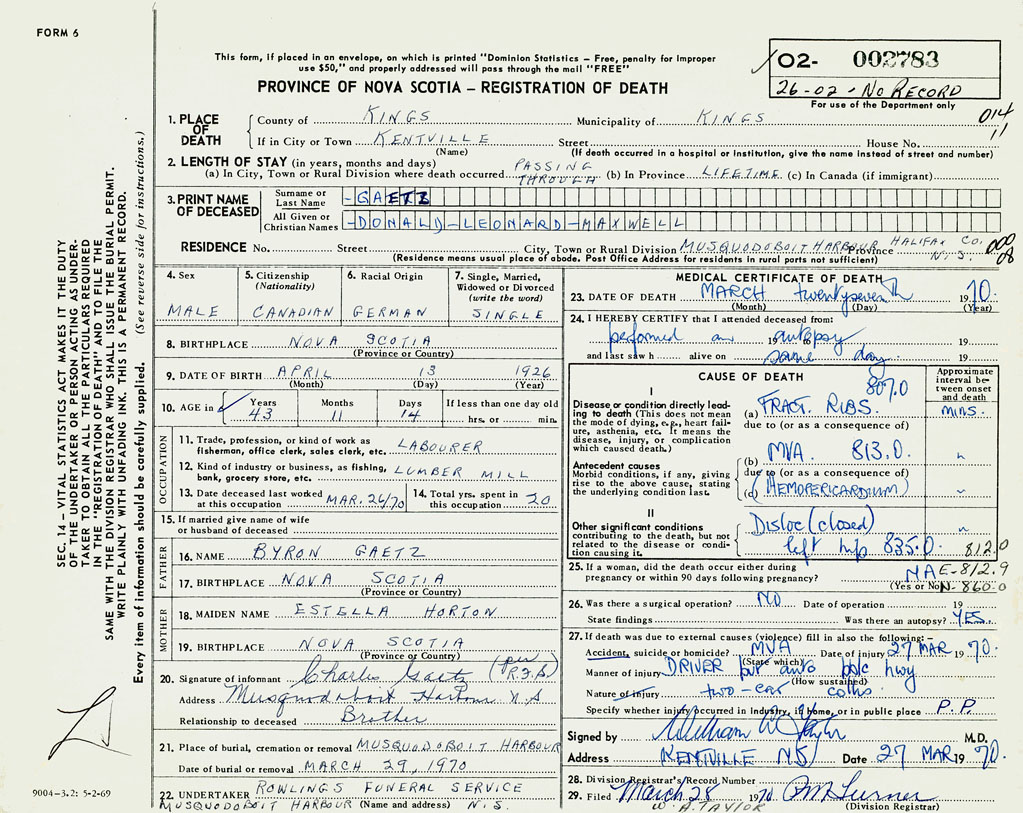 FORM 6
This form, if placed in an envelope, on which is printed "Dominion Statistics – Free, penalty for improper
use $50," and properly addressed will pass through the mail "FREE"
PROVINCE OF NOVA SCOTIA – REGISTRATION OF DEATH
02- 002783
26-02 - NO RECORD
For use of the Department only
014
11
1. PLACE OF DEATH
County of KINGS Municipality of KINGS
If in City or Town KENTVILLE Street House No.
(Name) (If death occurred in a hospital or institution, give the name instead of street and number)
2. LENGTH OF STAY (in years, months and days)
(a) In City, Town or Rural Division where death occurred PASSING THROUGH (b) In Province LIFETIME (c) In Canada (if immigrant)
3. PRINT NAME OF DECEASED
Surname or Last Name -GAETZ
All Given or Christian Names -DONALD-LEONARD-MAXWELL
RESIDENCE No. Street City, Town or Rural Division MUSQUODOBOIT HARBOUR Province HALIFAX CO. N.S.
000
08
(Residence means usual place of abode. Post Office Address for residents in rural parts not sufficient)
4. Sex MALE
5. Citizenship (Nationality) CANADIAN
6. Racial Origin GERMAN
7. Single, Married, Widowed or Divorced (write the word) SINGLE
8. BIRTHPLACE NOVA SCOTIA
(Province or Country)
9. DATE OF BIRTH APRIL 13 1926
(Month) (Day) (Year)
10. AGE in Years 43 Months 11 Days 14 If less than one day old hrs. or min.
OCCUPATION
11. Trade, profession, or kind of work as fisherman, office clerk, sales clerk, etc. LABOURER
12. Kind of industry or business, as fishing, bank, grocery store, etc. LUMBER MILL
13. Date deceased last worked at this occupation MAR. 26/70
14. Total yrs. spent in this occupation 20
15. If married give name of wife or husband of deceased
FATHER
16. NAME BYRON GAETZ
17. BIRTHPLACE NOVA SCOTIA
(Province or Country)
MOTHER
18. MAIDEN NAME ESTELLA HORTON
19. BIRTHPLACE NOVA SCOTIA
(Province or Country)
20. Signature of informant Charles Gaetz (per R.F.S)
Address Musquodoboit Harbour N.S
Relationship to deceased Brother
21. Place of burial, cremation or removal MUSQUODOBOIT HARBOUR
Date of burial or removal MARCH 29, 1970
22. UNDERTAKER ROWLINGS FUNERAL SERVICE
MUSQUODOBOIT HARBOUR (Name and address) N.S.
MEDICAL CERTIFICATE OF DEATH
23. DATE OF DEATH MARCH twentyseventh 1970.
(Month) (Day) (Year)
24. I HEREBY CERTIFY that I attended deceased from:
performed an 19 to autopsy 19
and last saw h alive on same day 19
CAUSE OF DEATH
Approximate interval between onset and death
I
Disease or condition directly leading to death (This does not mean the mode of dying, e.g., heart failure, asthenia, etc. It means the disease, injury, or complication which caused death.)
807.0
(a) FRACT. RIBS. MINS.
due to (or as a consequence of)
(b) MVA. 813.0 "
Antecedent causes
Morbid conditions, if any, giving rise to the above cause, stating the underlying condition last.
due to (or as a consequence of)
(c) (HEMOPERICARDIUM) "
II
Other significant conditions contributing to the death, but not related to the disease or condition causing it.
Disloc (closed) "
left hip 835.0 812.0
25. If a woman, did the death occur either during pregnancy or within 90 days following pregnancy? NA E-812.9
(Yes or No) N-860.0
26. Was there a surgical operation? NO Date of operation 19
State findings Was there an autopsy? YES.
27. If death was due to external causes (violence) fill in also the following:–
Accident, suicide or homicide? MVA Date of injury 27 MAR 1970.
(State which)
Manner of injury DRIVER pvt auto pblc hwy
(How sustained)
Nature of injury two-car
Specify whether injury occurred in Industry, if home, or in public place P.P.
Signed by M.D.
Address KENTVILLE NS Date 27 MAR 1970.
28. Division Registrar's Record Number
29. Filed March 28 1970
W. A. TAYLOR (Division Registrar)
SEC. 14 – VITAL STATISTICS ACT MAKES IT THE DUTY
OF THE UNDERTAKER OR PERSON ACTING AS UNDER-
TAKER TO OBTAIN ALL THE PARTICULARS REQUIRED
IN THE "REGISTRATION OF DEATH" AND TO FILE THE
SAME WITH THE DIVISION REGISTRAR WHO SHALL ISSUE THE BURIAL PERMIT.
WRITE PLAINLY WITH UNFADING INK. THIS IS A PERMANENT RECORD.
Every item of information should be carefully supplied. (See reverse side for instructions.)
9004-3.2: 5-2-69